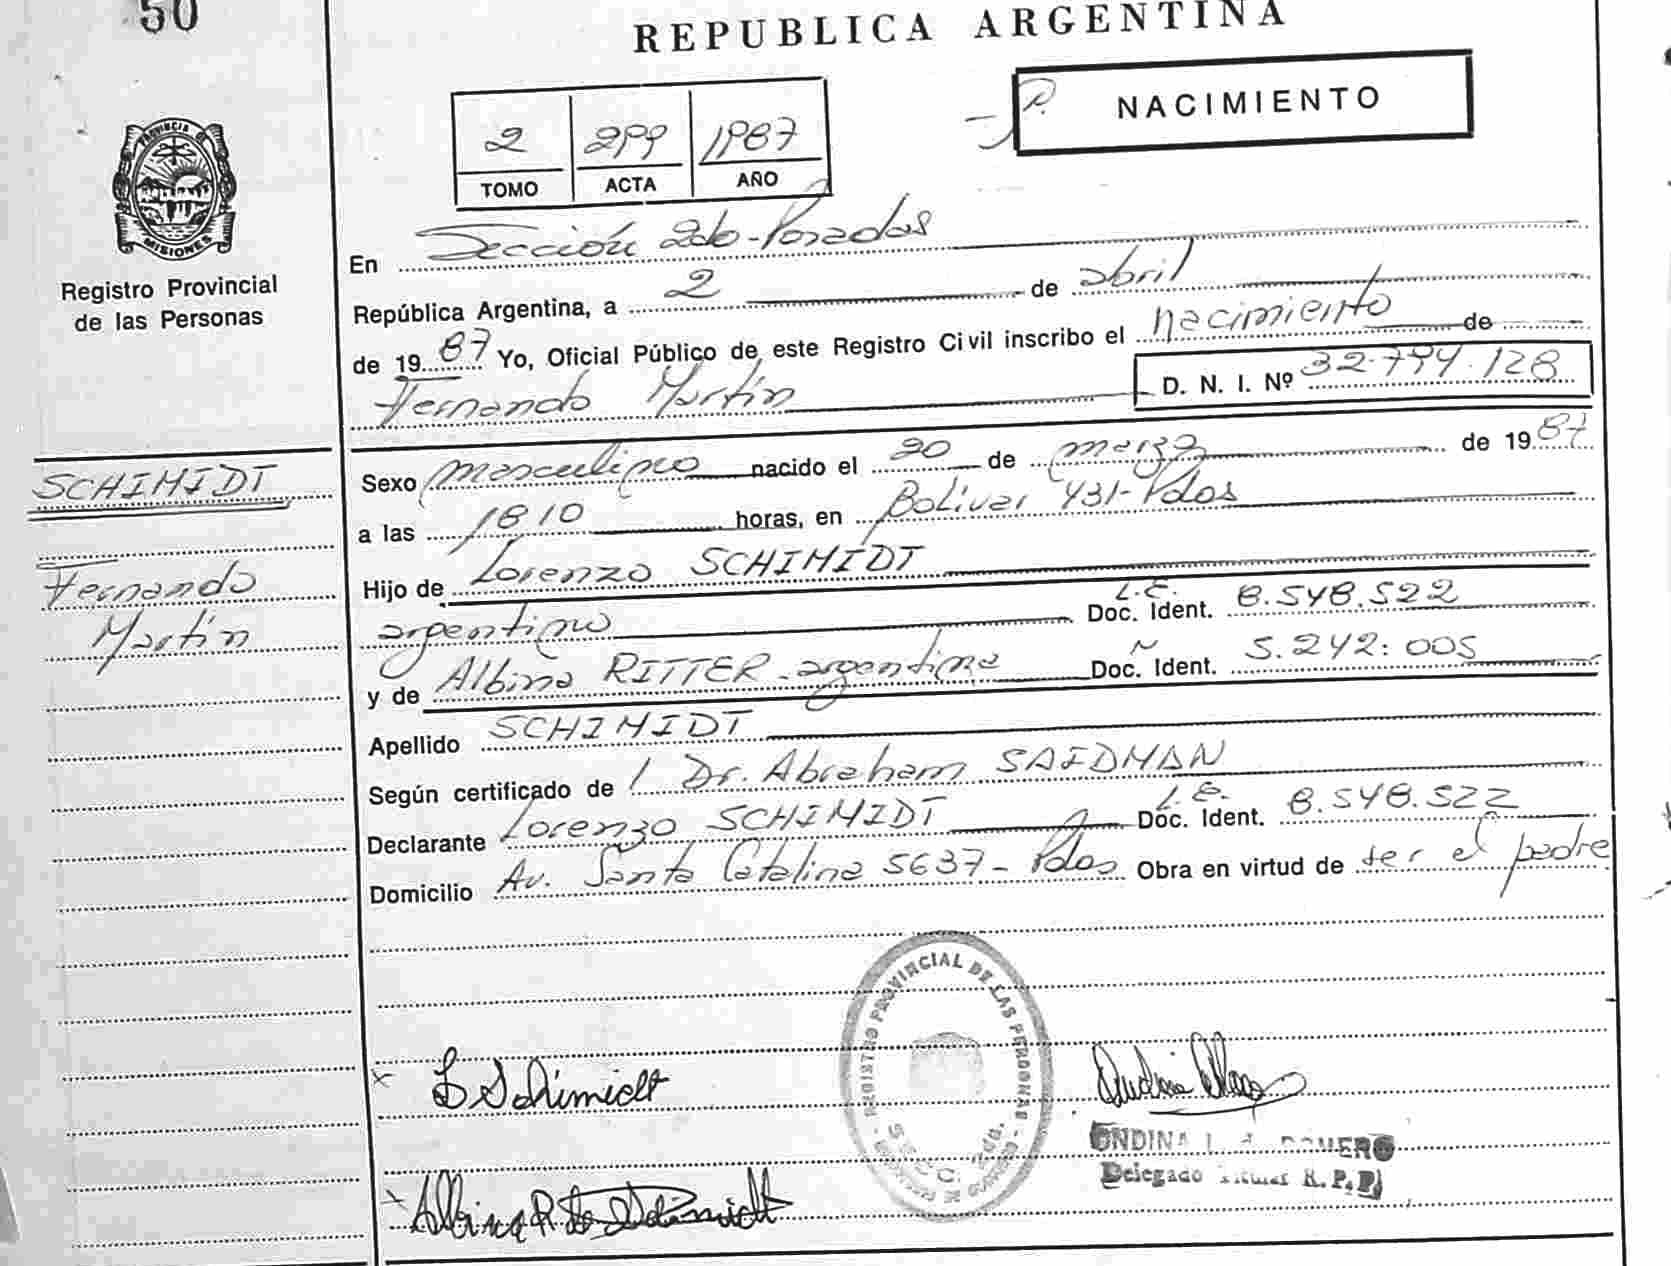 50
REPUBLICA ARGENTINA
NACIMIENTO
2 299 1987
TOMO ACTA AÑO
PROVINCIA DE
MISIONES
Registro Provincial
de las Personas
En Sección 2do-Posadas
República Argentina, a 2 de abril
de 1987 Yo, Oficial Público de este Registro Civil inscribo el nacimiento de
Fernando Martín D. N. I. Nº 32.794.128
SCHIMIDT
Fernando
Martín
Sexo masculino nacido el 20 de marzo de 1987
a las 1810 horas, en Bolívar 431-Pdas
Hijo de Lorenzo SCHIMIDT
argentino L.E. Doc. Ident. 8.548.522
y de Albina RITTER-argentina Doc. Ident. 5.242:005
Apellido SCHIMIDT
Según certificado de Dr. Abraham SAIDMAN
Declarante Lorenzo SCHIMIDT L.E. Doc. Ident. 8.548.522
Domicilio Av. Santa Catalina 5637-Pdas Obra en virtud de ser el padre
REGISTRO PROVINCIAL DE LAS PERSONAS
SECC. 2da.
L Schimidt
ONDINA ROMERO
Delegado Titular R.P.P.
Albina R de Schimidt